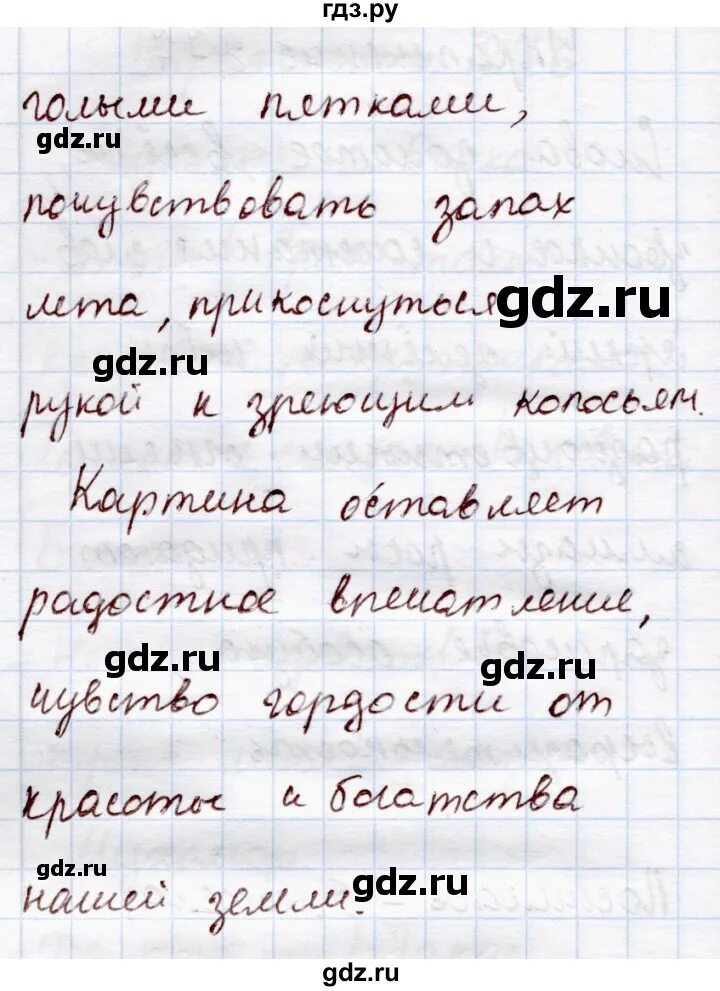 гдз.ру
голыми пятками,
gdz.ru
почувствовать запах
лета, прикоснуться
gdz.ru
gdz.ru
рукой к зреющим колосьям.
Картина оставляет
радостное впечатление,
gdz.ru
gdz.ru
чувство гордости от
красоты и богатства
gdz.ru
gdz.ru
нашей земли.
gdz.ru